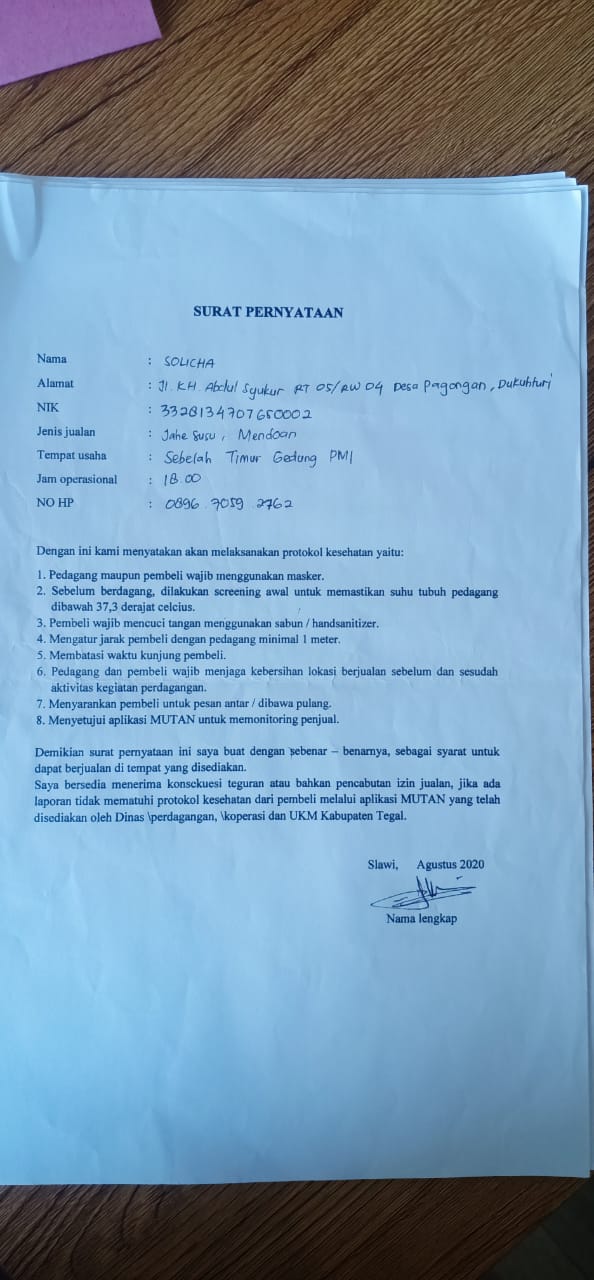 SURAT PERNYATAAN
Nama : SOLICHA
Alamat : Jl. KH. Abdul Syukur RT 05/RW 04 Desa Pagongan, Dukuhturi
NIK : 3328134707650002
Jenis jualan : Jahe susu, Mendoan
Tempat usaha : Sebelah Timur Gedung PMI
Jam operasional : 18.00
NO HP : 0896 7059 2762
Dengan ini kami menyatakan akan melaksanakan protokol kesehatan yaitu:
1. Pedagang maupun pembeli wajib menggunakan masker.
2. Sebelum berdagang, dilakukan screening awal untuk memastikan suhu tubuh pedagang
dibawah 37,3 derajat celcius.
3. Pembeli wajib mencuci tangan menggunakan sabun / handsanitizer.
4. Mengatur jarak pembeli dengan pedagang minimal 1 meter.
5. Membatasi waktu kunjung pembeli.
6. Pedagang dan pembeli wajib menjaga kebersihan lokasi berjualan sebelum dan sesudah
aktivitas kegiatan perdagangan.
7. Menyarankan pembeli untuk pesan antar / dibawa pulang.
8. Menyetujui aplikasi MUTAN untuk memonitoring penjual.
Demikian surat pernyataan ini saya buat dengan sebenar – benarnya, sebagai syarat untuk
dapat berjualan di tempat yang disediakan.
Saya bersedia menerima konsckuesi teguran atau bahkan pencabutan izin jualan, jika ada
laporan tidak mematuhi protokol kesehatan dari pembeli melalui aplikasi MUTAN yang telah
disediakan oleh Dinas \perdagangan, \koperasi dan UKM Kabupaten Tegal.
Slawi, Agustus 2020
Nama lengkap